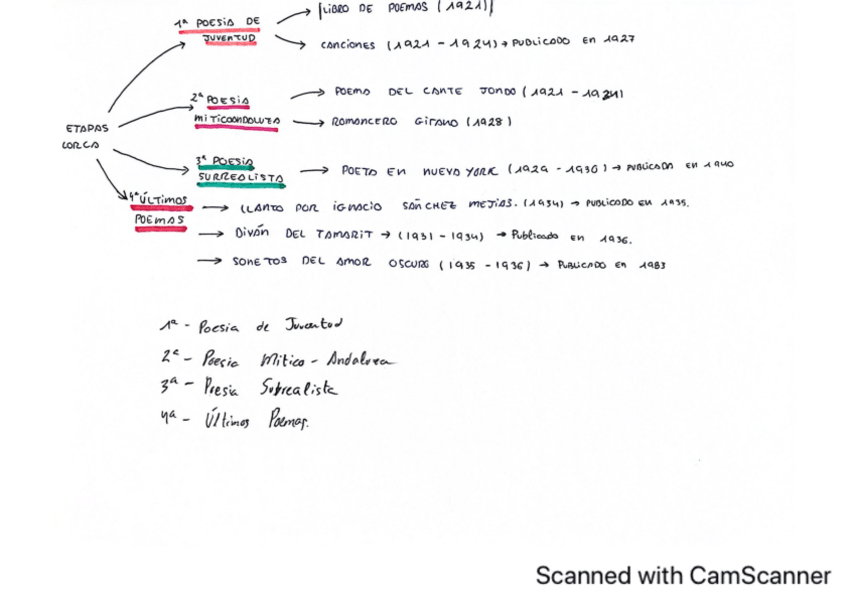 1ª POESIA DE JUVENTUD → LIBRO DE POEMAS (1921)
→ CANCIONES (1921 - 1924) → PUBLICADO EN 1927
ETAPAS LORCA
2ª POESIA MITICOANDALUZA → POEMA DEL CANTE JONDO (1921 - 1924)
→ ROMANCERO GITANO (1928)
3ª POESIA SURREALISTA → POETA EN NUEVA YORK (1929 - 1930) → PUBLICADA EN 1940
4ª ÚLTIMOS POEMAS → LLANTO POR IGNACIO SÁNCHEZ MEJIAS. (1934) → PUBLICADO EN 1935.
→ DIVÁN DEL TAMARIT → (1931 - 1934) → Publicado EN 1936.
→ SONETOS DEL AMOR OSCURO (1935 - 1936) → PUBLICADO EN 1983
1ª - Poesia de Juventud
2ª - Poesia Mitico - Andaluza
3ª - Poesia Surrealista
4ª - Últimos Poemas.
Scanned with CamScanner